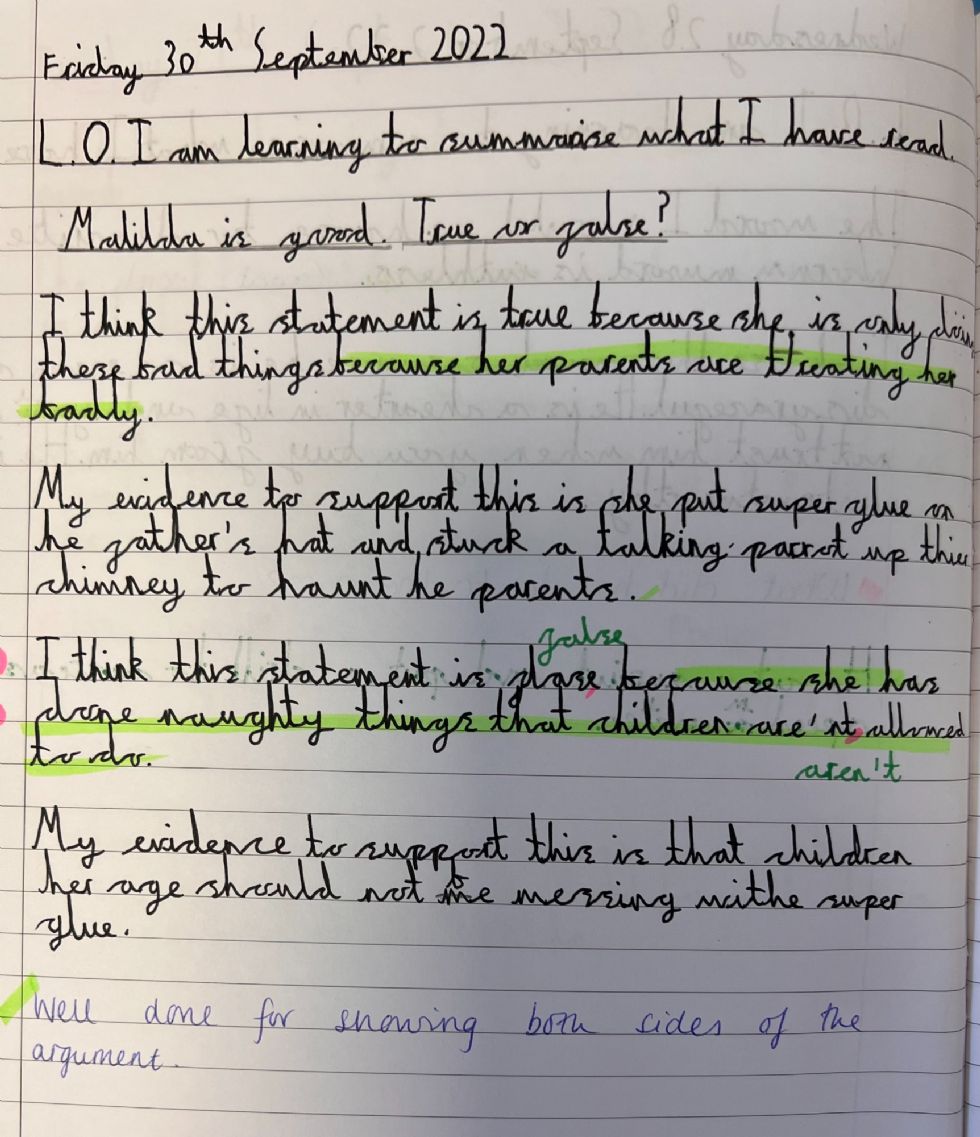 Friday 30th September 2022
L.O. I am learning to summarise what I have read.
Malilda is good. True or false?
I think this statement is true because she is only doing
these bad things because her parents are treating her
badly.
My evidence to support this is she put super glue on
he father's hat and stuck a talking parrot up thier
chimney to haunt he parents.
false
I think this statement is because she has
done naughty things that children are'nt allowed
to do.
aren't
My evidence to support this is that children
her age should not be messing withe super
glue.
Well done for showing both sides of the
argument.